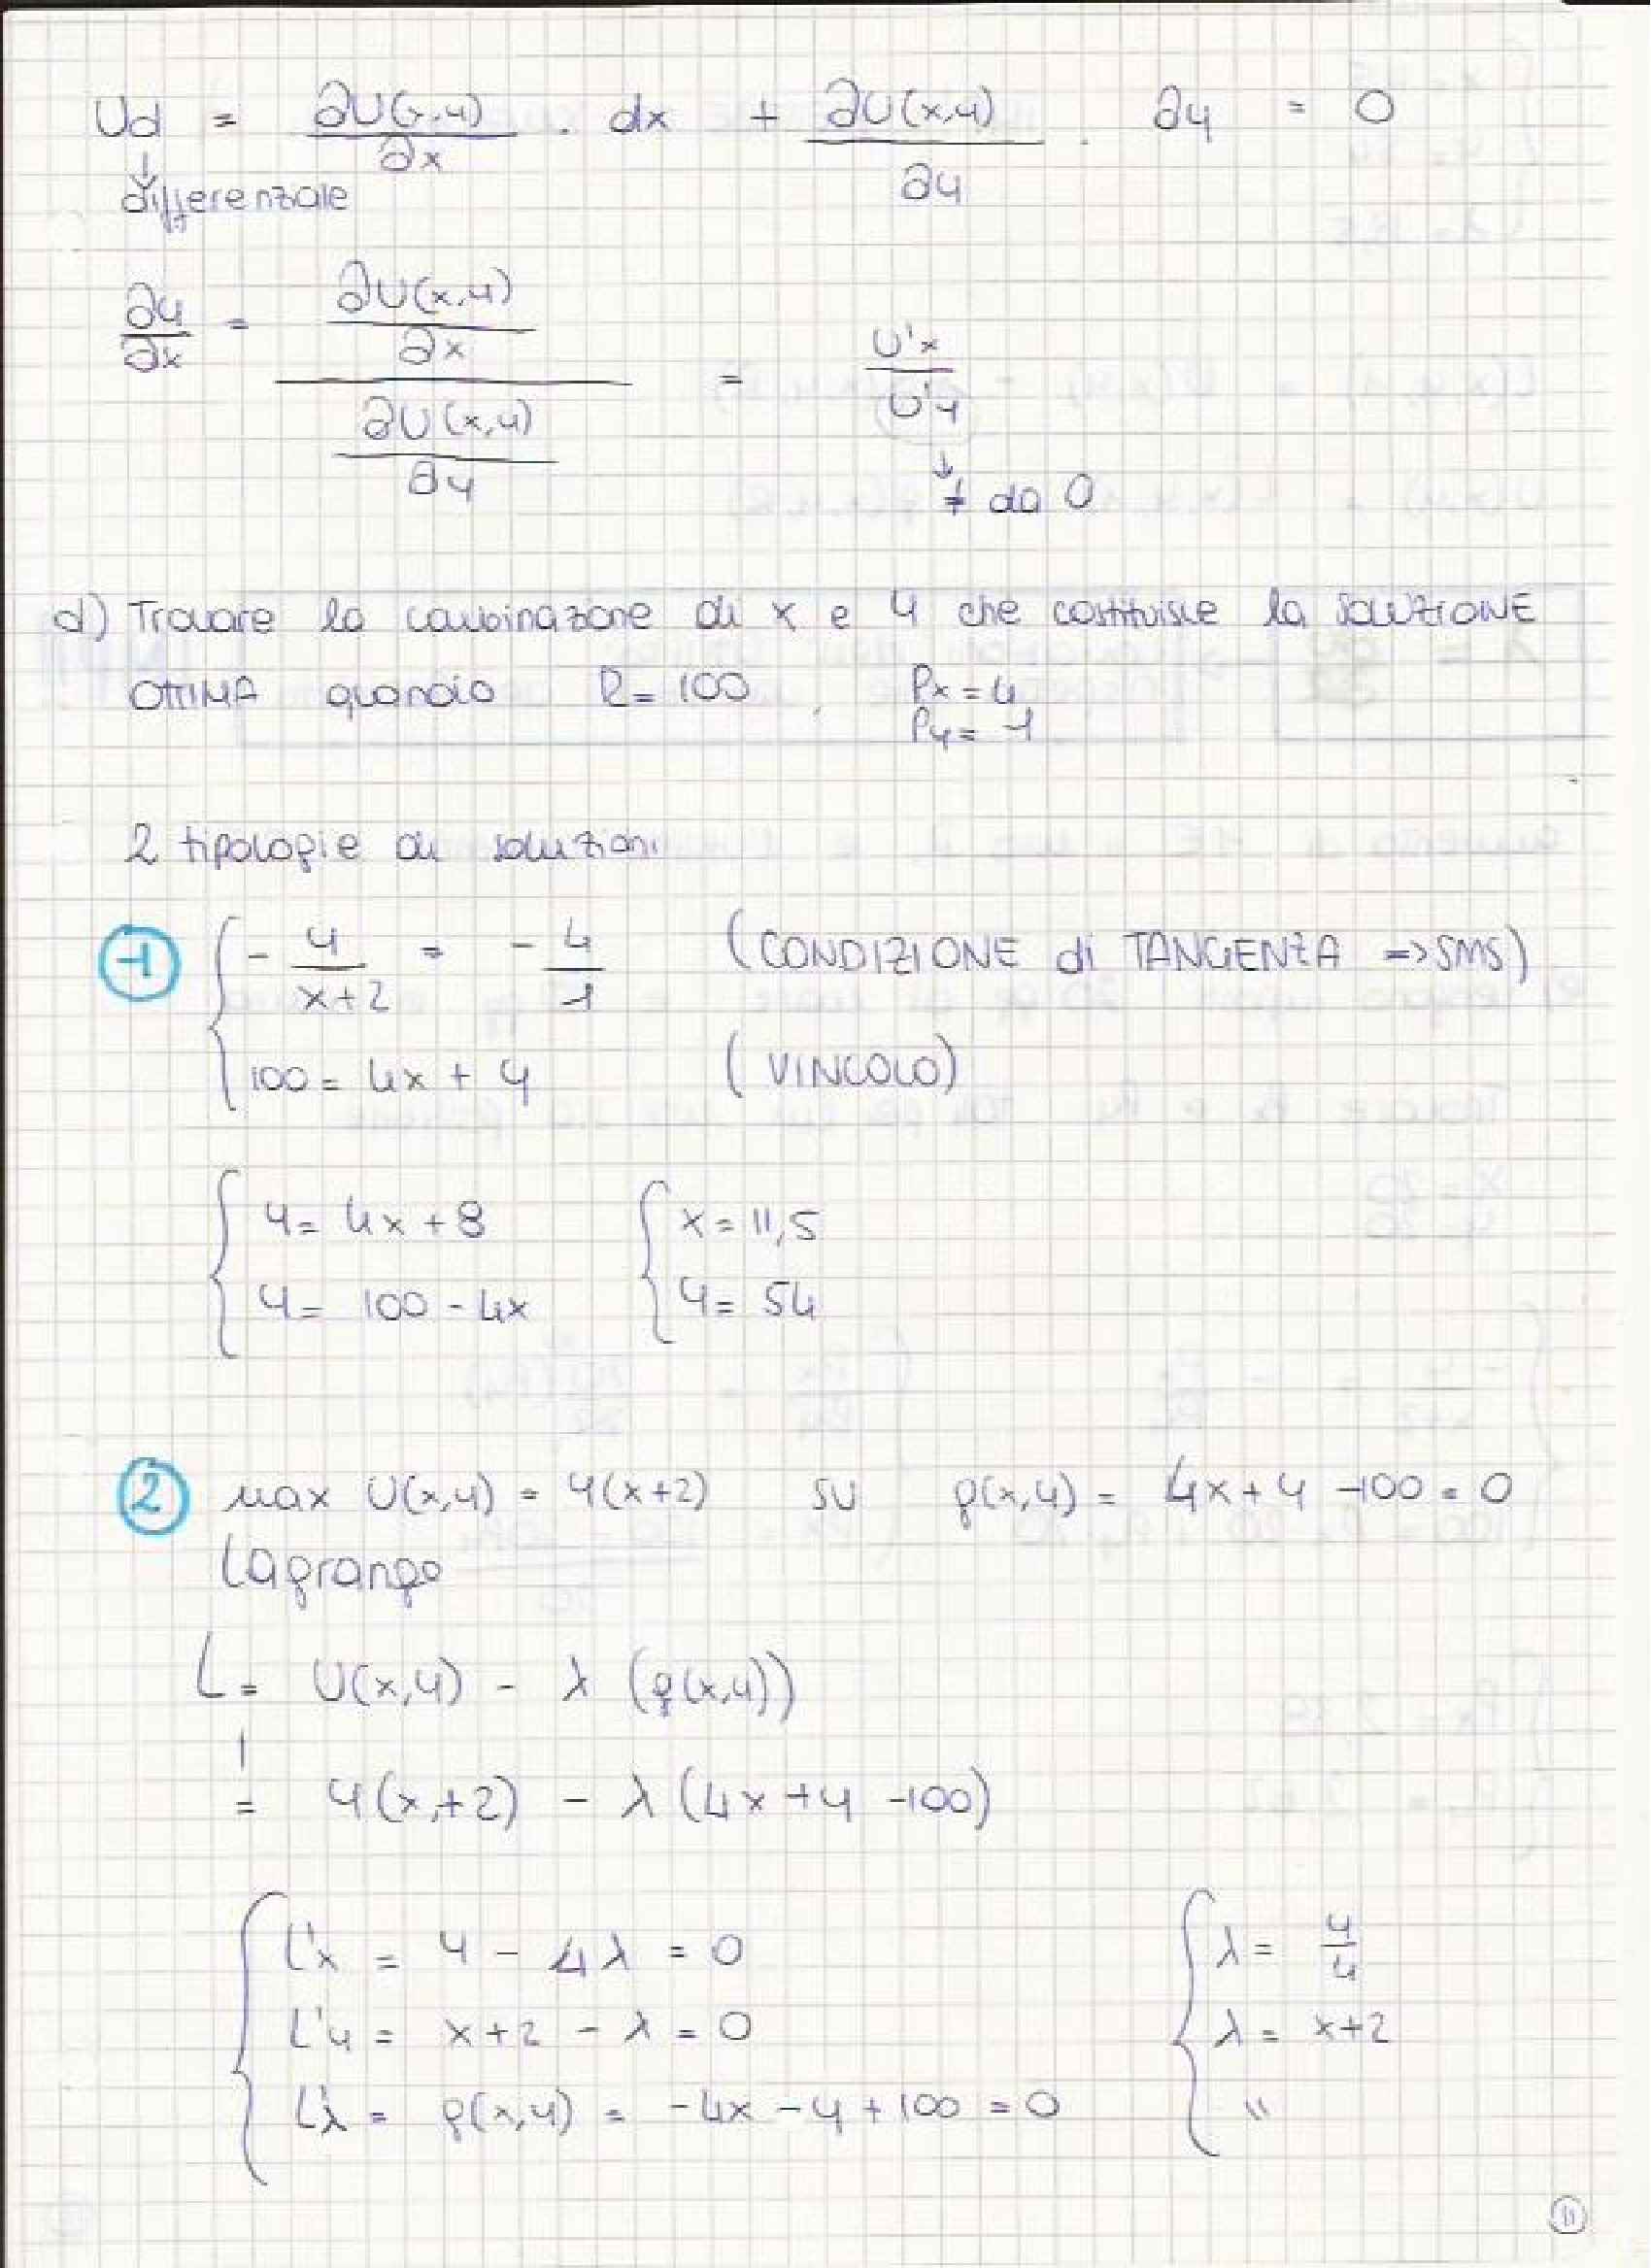 Ud = ∂U(x,y)/∂x · dx + ∂U(x,y)/∂y · ∂y = 0
↓
differenziale
∂y/∂x = (∂U(x,y)/∂x)/(∂U(x,y)/∂y) = U'x/U'y
↓
≠ da 0
d) Trovare la combinazione di x e y che costituisce la SOLUZIONE
OTTIMA quando R = 100, Px = 4
Py = 1
2 tipologie di soluzioni
1 { - y/(x+2) = - 4/1 (CONDIZIONE di TANGENZA => SMS)
100 = 4x + y (VINCOLO)
{ y = 4x + 8 { x = 11,5
y = 100 - 4x y = 54
2 max U(x,y) = y(x+2) su g(x,y) = 4x + y - 100 = 0
Lagrange
L = U(x,y) - λ (g(x,y))
= y(x+2) - λ (4x + y - 100)
{ L'x = y - 4λ = 0 { λ = y/4
L'y = x + 2 - λ = 0 λ = x+2
L'λ = g(x,y) = -4x - y + 100 = 0 "
11